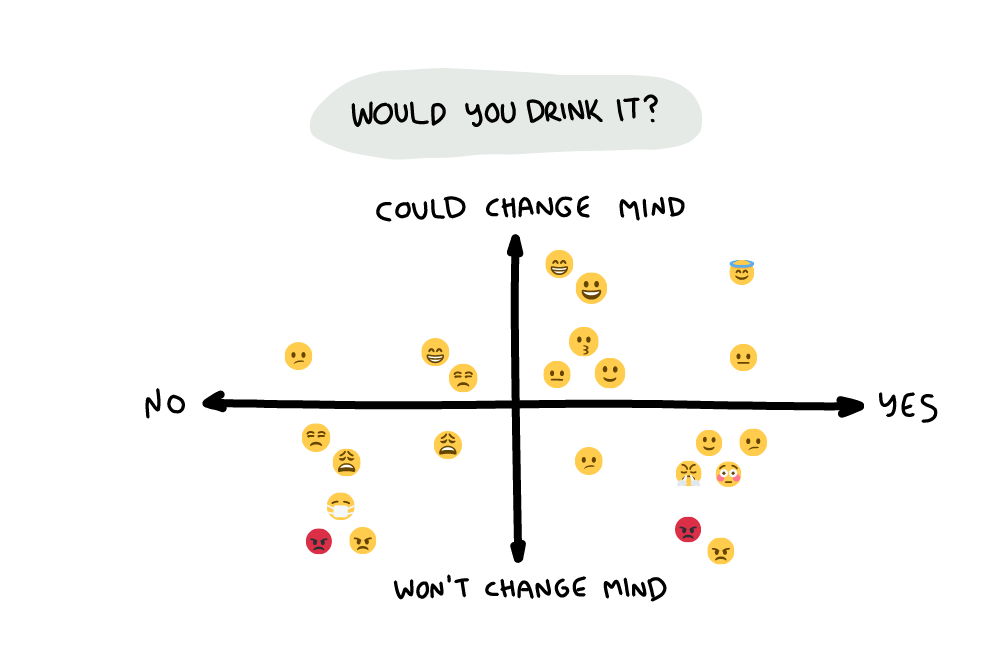 WOULD YOU DRINK IT?
COULD CHANGE MIND
NO
YES
WON'T CHANGE MIND